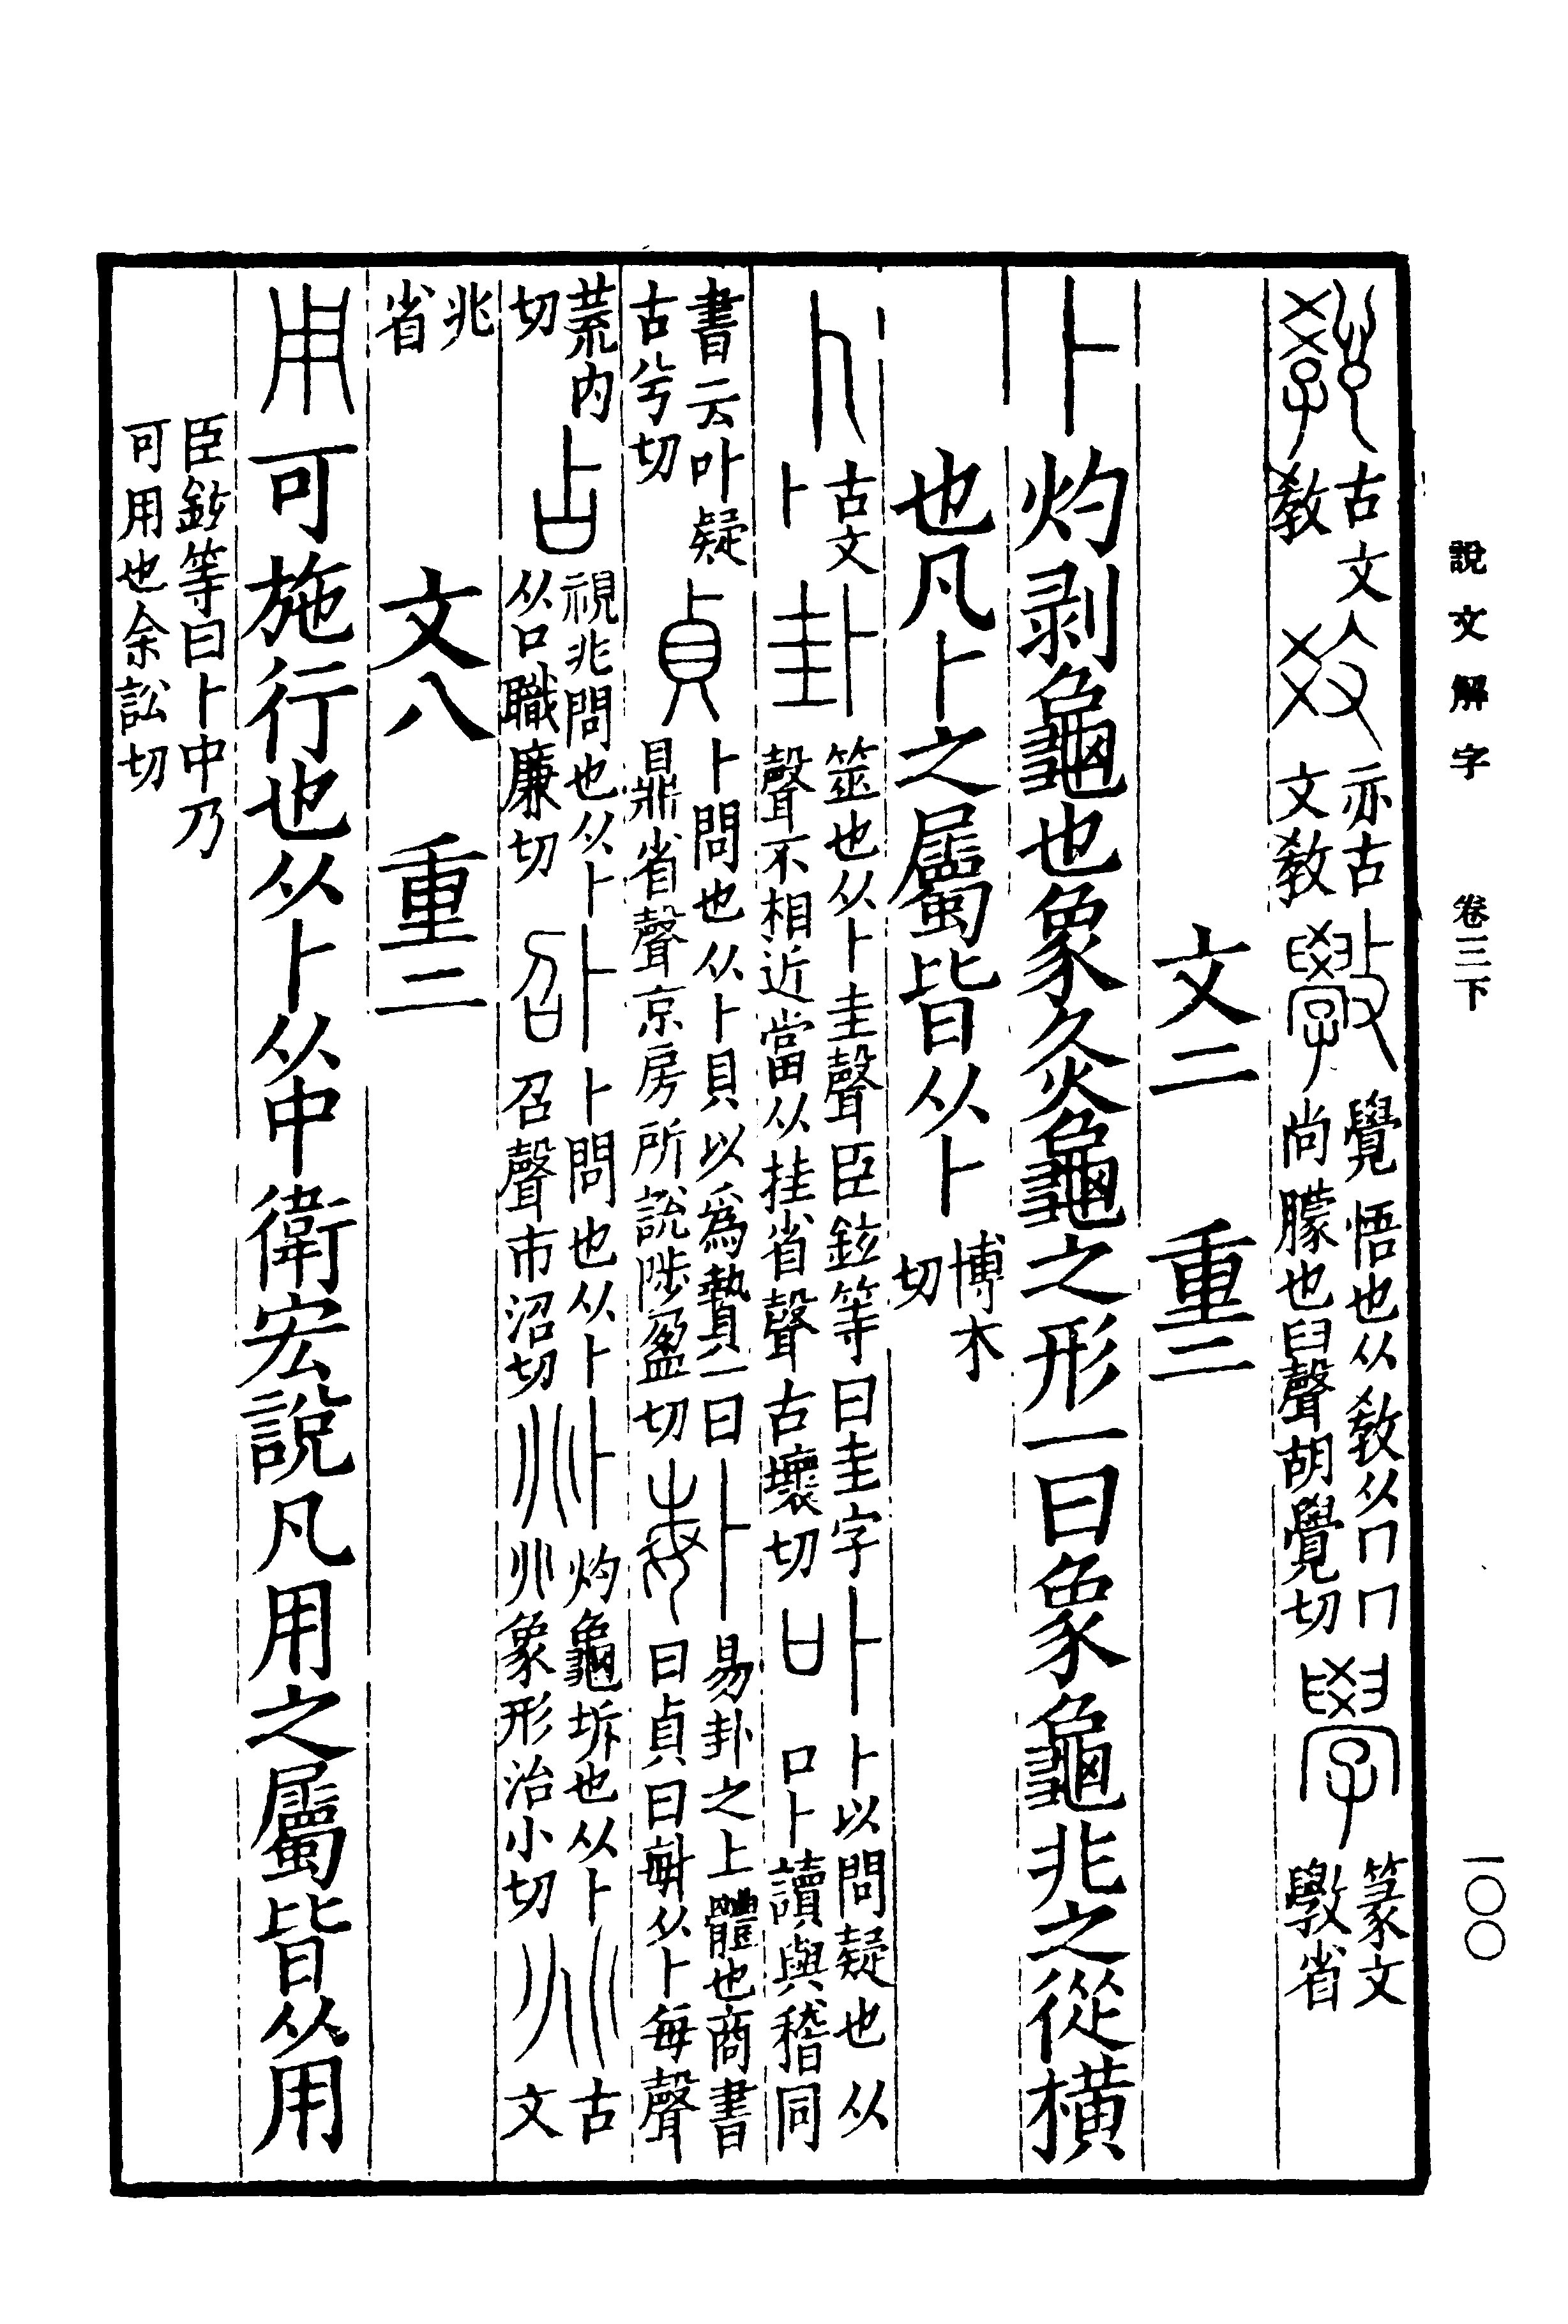 說文解字 卷三下 一〇〇
𤕝古文敎𢻯亦古文敎斆覺悟也从敎从冂冂尚朦也臼聲胡覺切學篆文斆省
文二 重二
卜灼剥龜也象灸龜之形一曰象龜兆之從橫
也凡卜之屬皆从卜博木切
卜古文卜卦筮也从卜圭聲臣鉉等曰圭字聲不相近當从挂省聲古壞切卟卜以問疑也从口卜讀與稽同
書云卟疑古兮切貞卜問也从卜貝以爲贄一曰鼎省聲京房所說陟盈切𠧩易卦之上體也商書曰貞曰𠧩从卜每聲
荒内切占視兆問也从卜从口職廉切𠧙卜問也从卜召聲市沼切𠧞灼龜坼也从卜兆象形治小切兆古文
兆省 文八 重二
用可施行也从卜从中衞宏說凡用之屬皆从用
臣鉉等曰卜中乃可用也余訟切